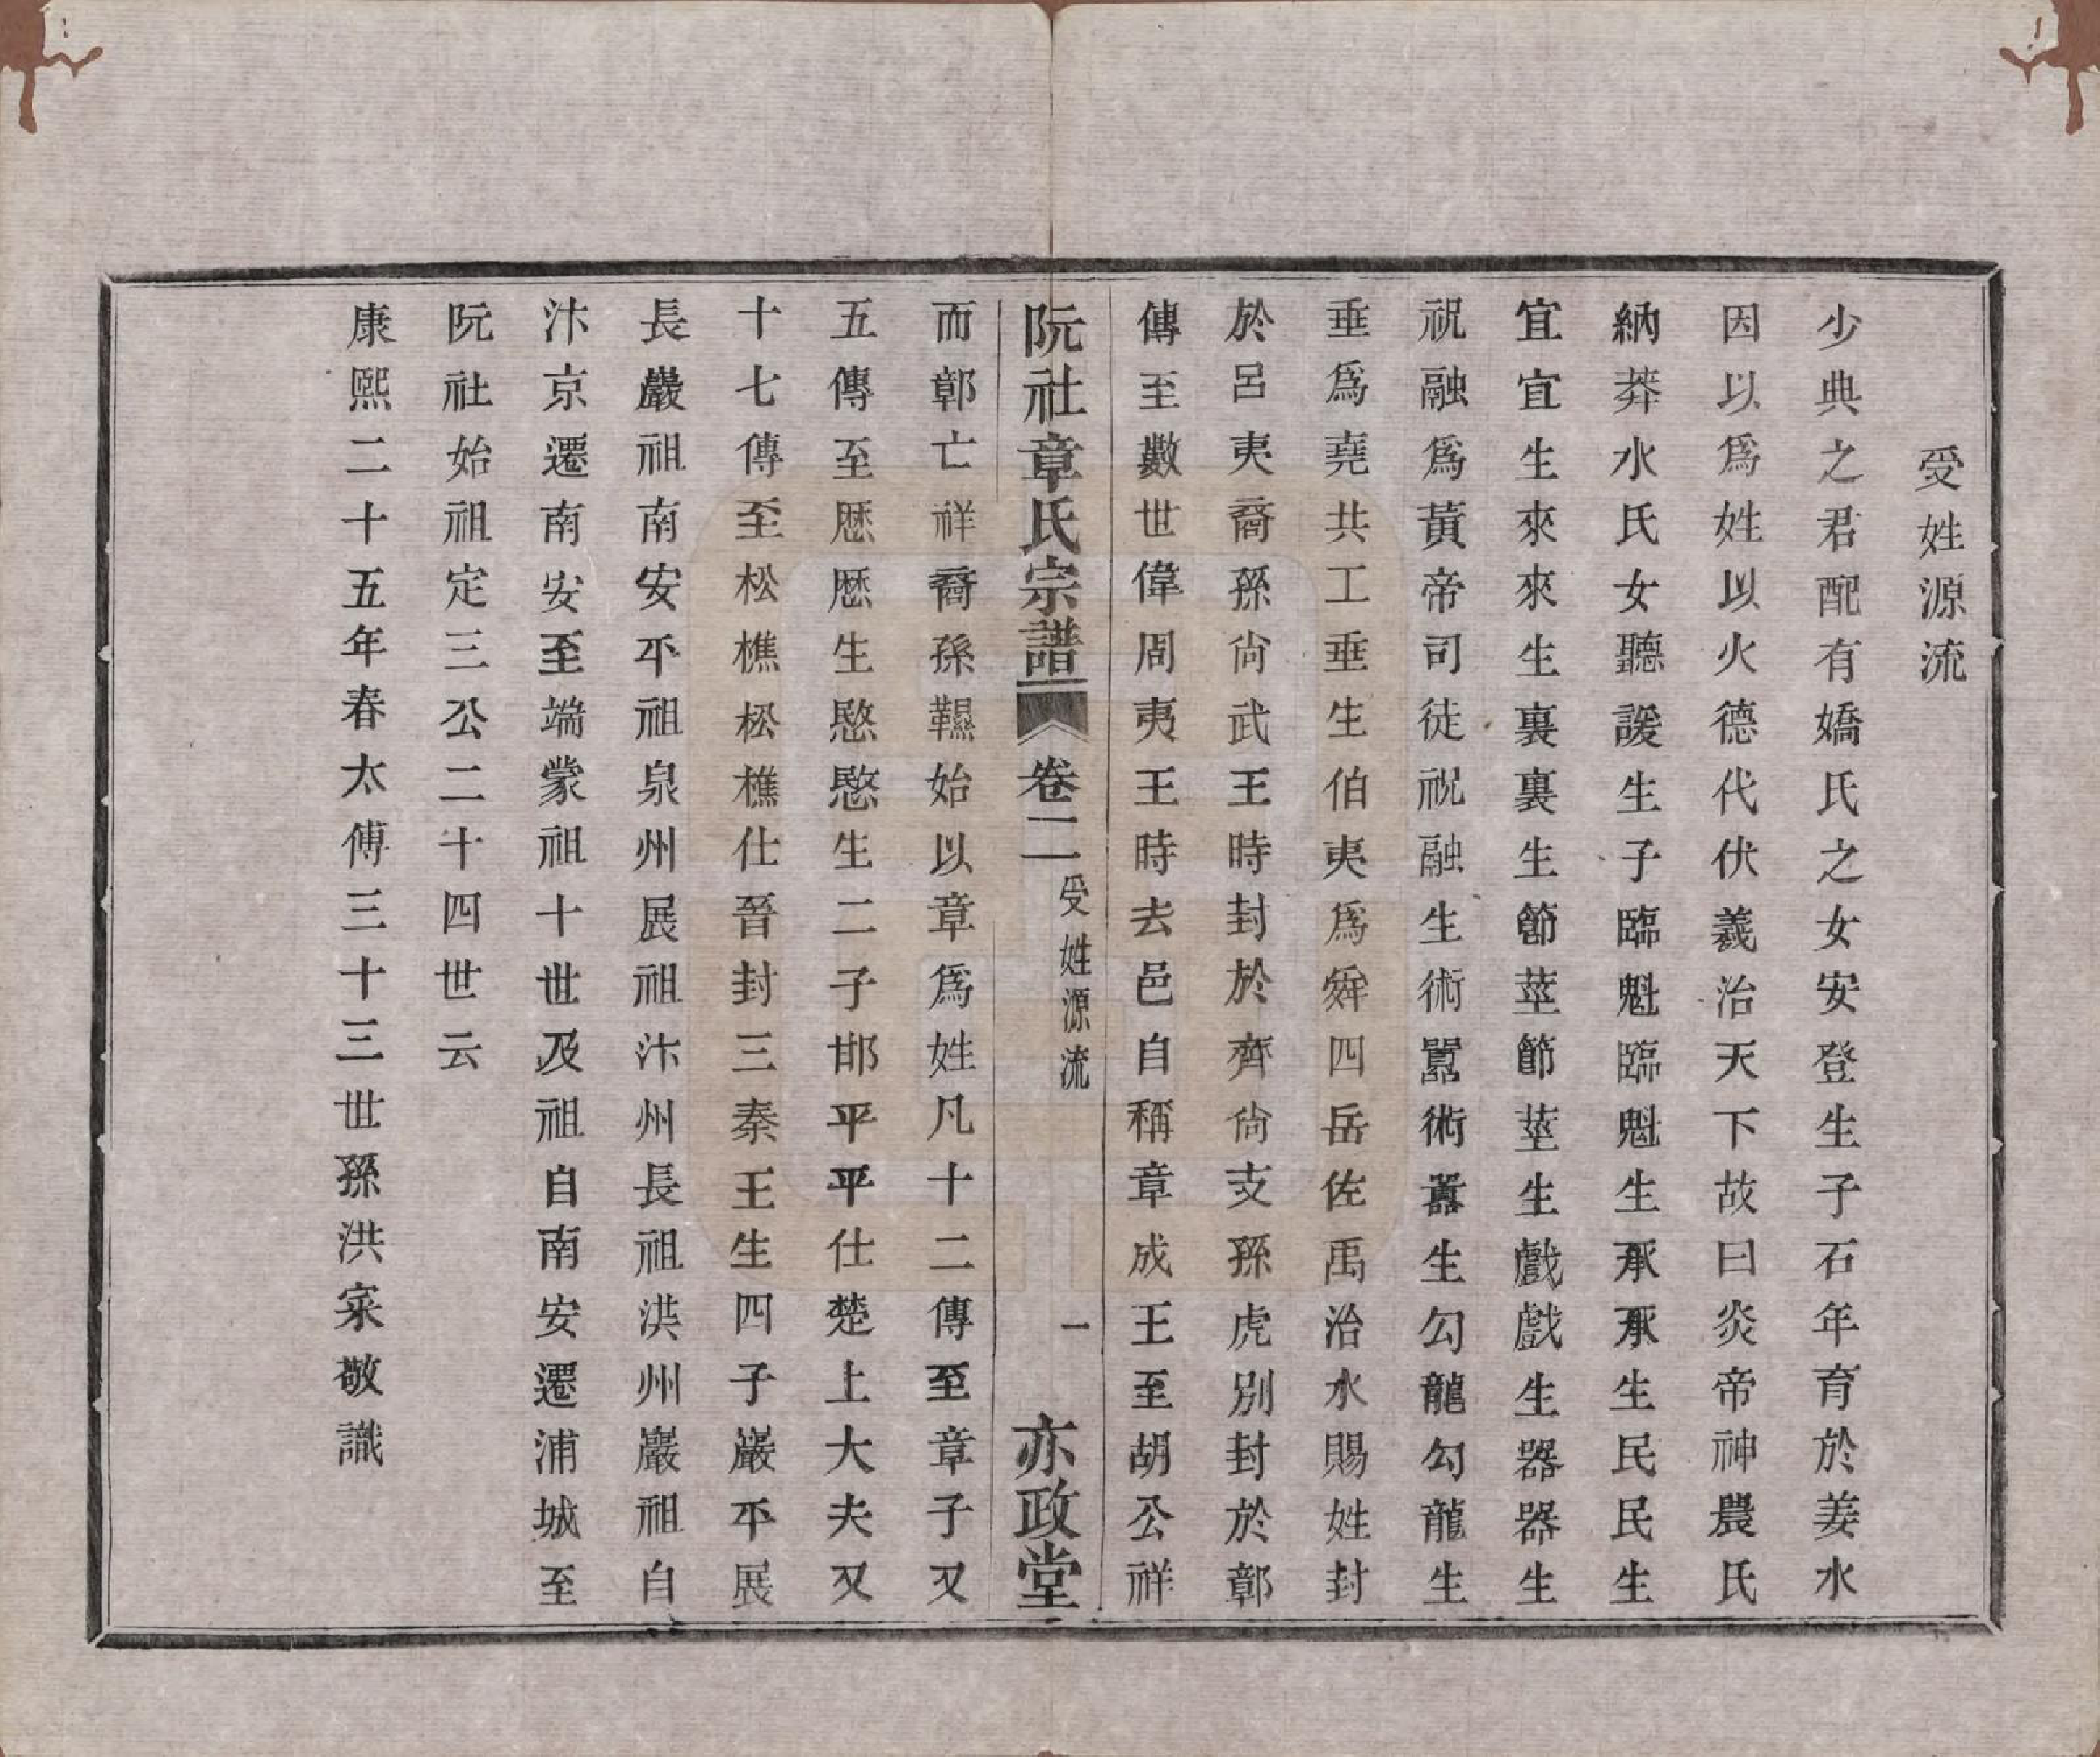 受姓源流
少典之君配有嬌氏之女安登生子石年育於姜水
因以爲姓以火德代伏羲治天下故曰炎帝神農氏
納莽水氏女聽諼生子臨魁臨魁生承承生民民生
宜宜生來來生裏裏生節莖節莖生戲戲生器器生
祝融爲黃帝司徒祝融生術嚣術嚣生勾龍勾龍生
垂爲堯共工垂生伯夷爲舜四岳佐禹治水賜姓封
於呂夷裔孫尙武王時封於齊尙支孫虎別封於鄣
傳至數世偉周夷王時去邑自稱章成王至胡公祥
阮社章氏宗譜 卷二 受姓源流 一 亦政堂
而鄣亡祥裔孫韅始以章爲姓凡十二傳至章子又
五傳至愿愿生愍愍生二子邯平平仕楚上大夫又
十七傳至松樵松樵仕晉封三秦王生四子巖平展
長巖祖南安平祖泉州展祖汴州長祖洪州巖祖自
汴京遷南安至端蒙祖十世及祖自南安遷浦城至
阮社始祖定三公二十四世云
康熙二十五年春太傅三十三世孫洪寀敬識